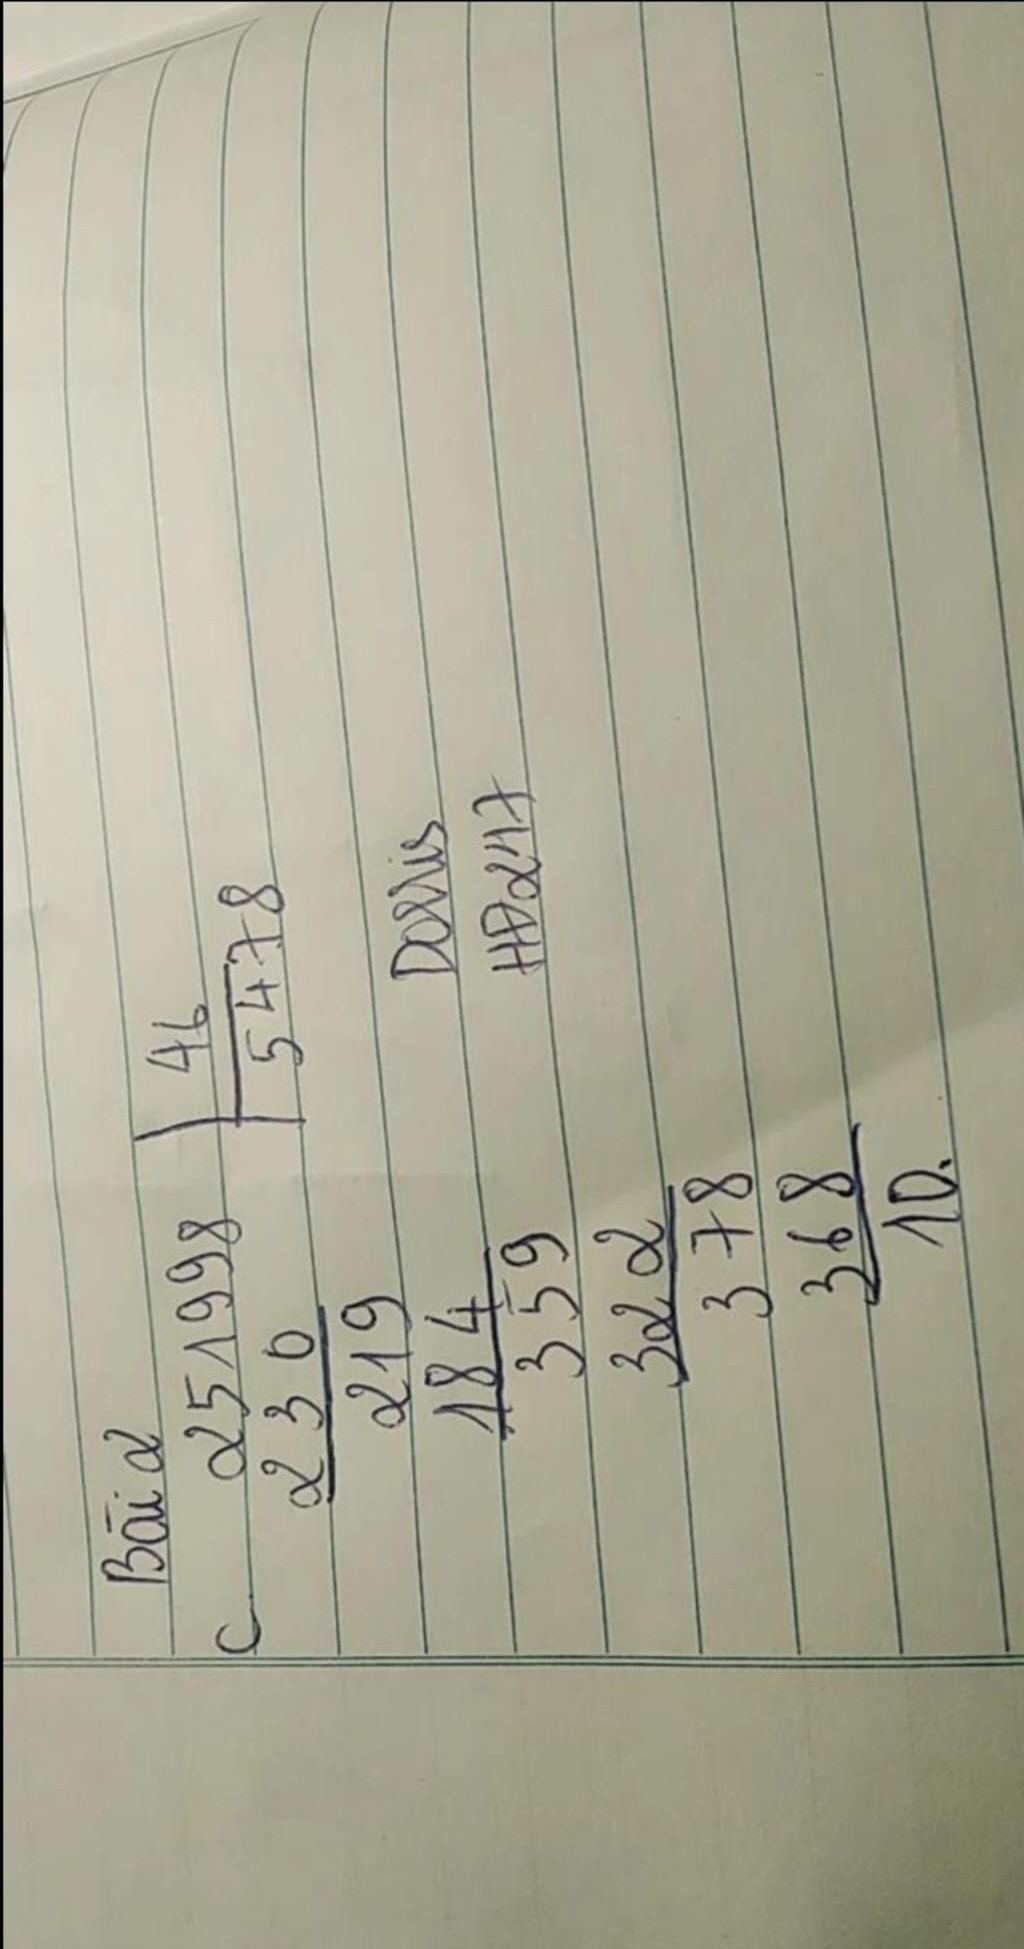 Bài 2
C 251998 | 46
230 5478
219
184
359
322
378
368
10.
Dorris
HD247